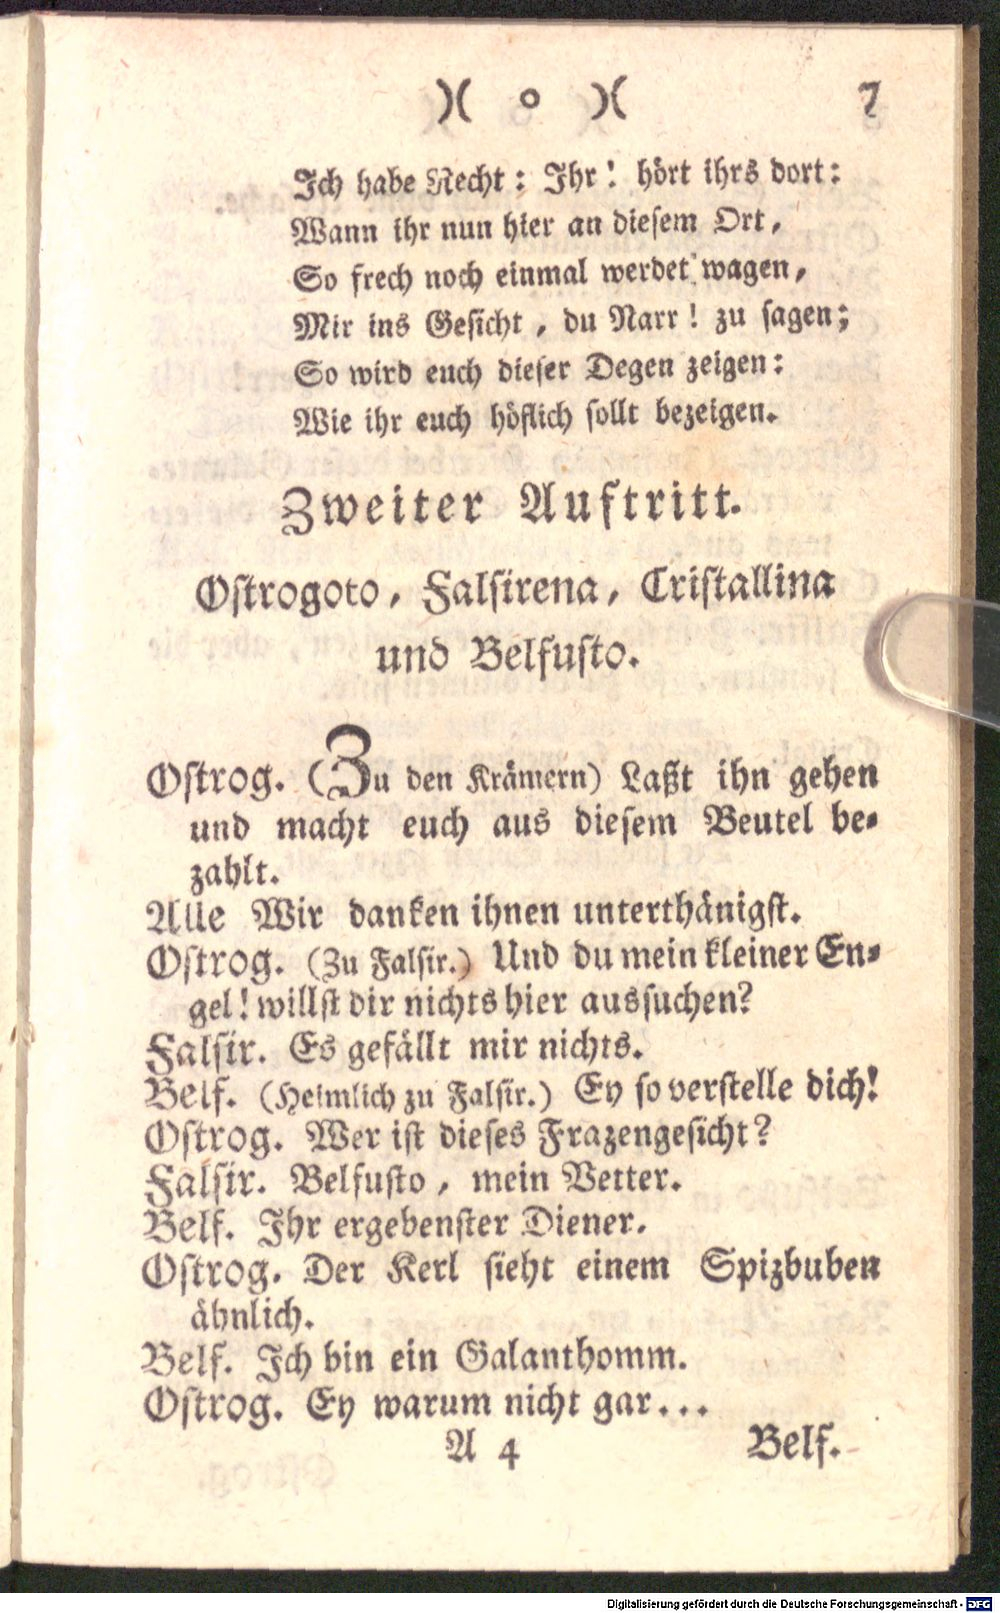 )( o )( 7
Ich habe Recht: Ihr! hört ihrs dort:
Wann ihr nun hier an diesem Ort,
So frech noch einmal werdet wagen,
Mir ins Gesicht, du Narr! zu sagen;
So wird euch dieser Degen zeigen:
Wie ihr euch höflich sollt bezeigen.
Zweiter Auftritt.
Ostrogoto, Falsirena, Cristallina
und Belfusto.
Ostrog. (Zu den Krämern) Laßt ihn gehen
und macht euch aus diesem Beutel be-
zahlt.
Alle Wir danken ihnen unterthänigst.
Ostrog. (Zu Falsir.) Und du mein kleiner En-
gel! willst dir nichts hier aussuchen?
Falsir. Es gefällt mir nichts.
Belf. (Heimlich zu Falsir.) Ey so verstelle dich!
Ostrog. Wer ist dieses Frazengesicht?
Falsir. Belfusto, mein Vetter.
Belf. Ihr ergebenster Diener.
Ostrog. Der Kerl sieht einem Spizbuben
ähnlich.
Belf. Ich bin ein Galanthomm.
Ostrog. Ey warum nicht gar...
A 4 Belf.
Digitalisierung gefördert durch die Deutsche Forschungsgemeinschaft - DFG